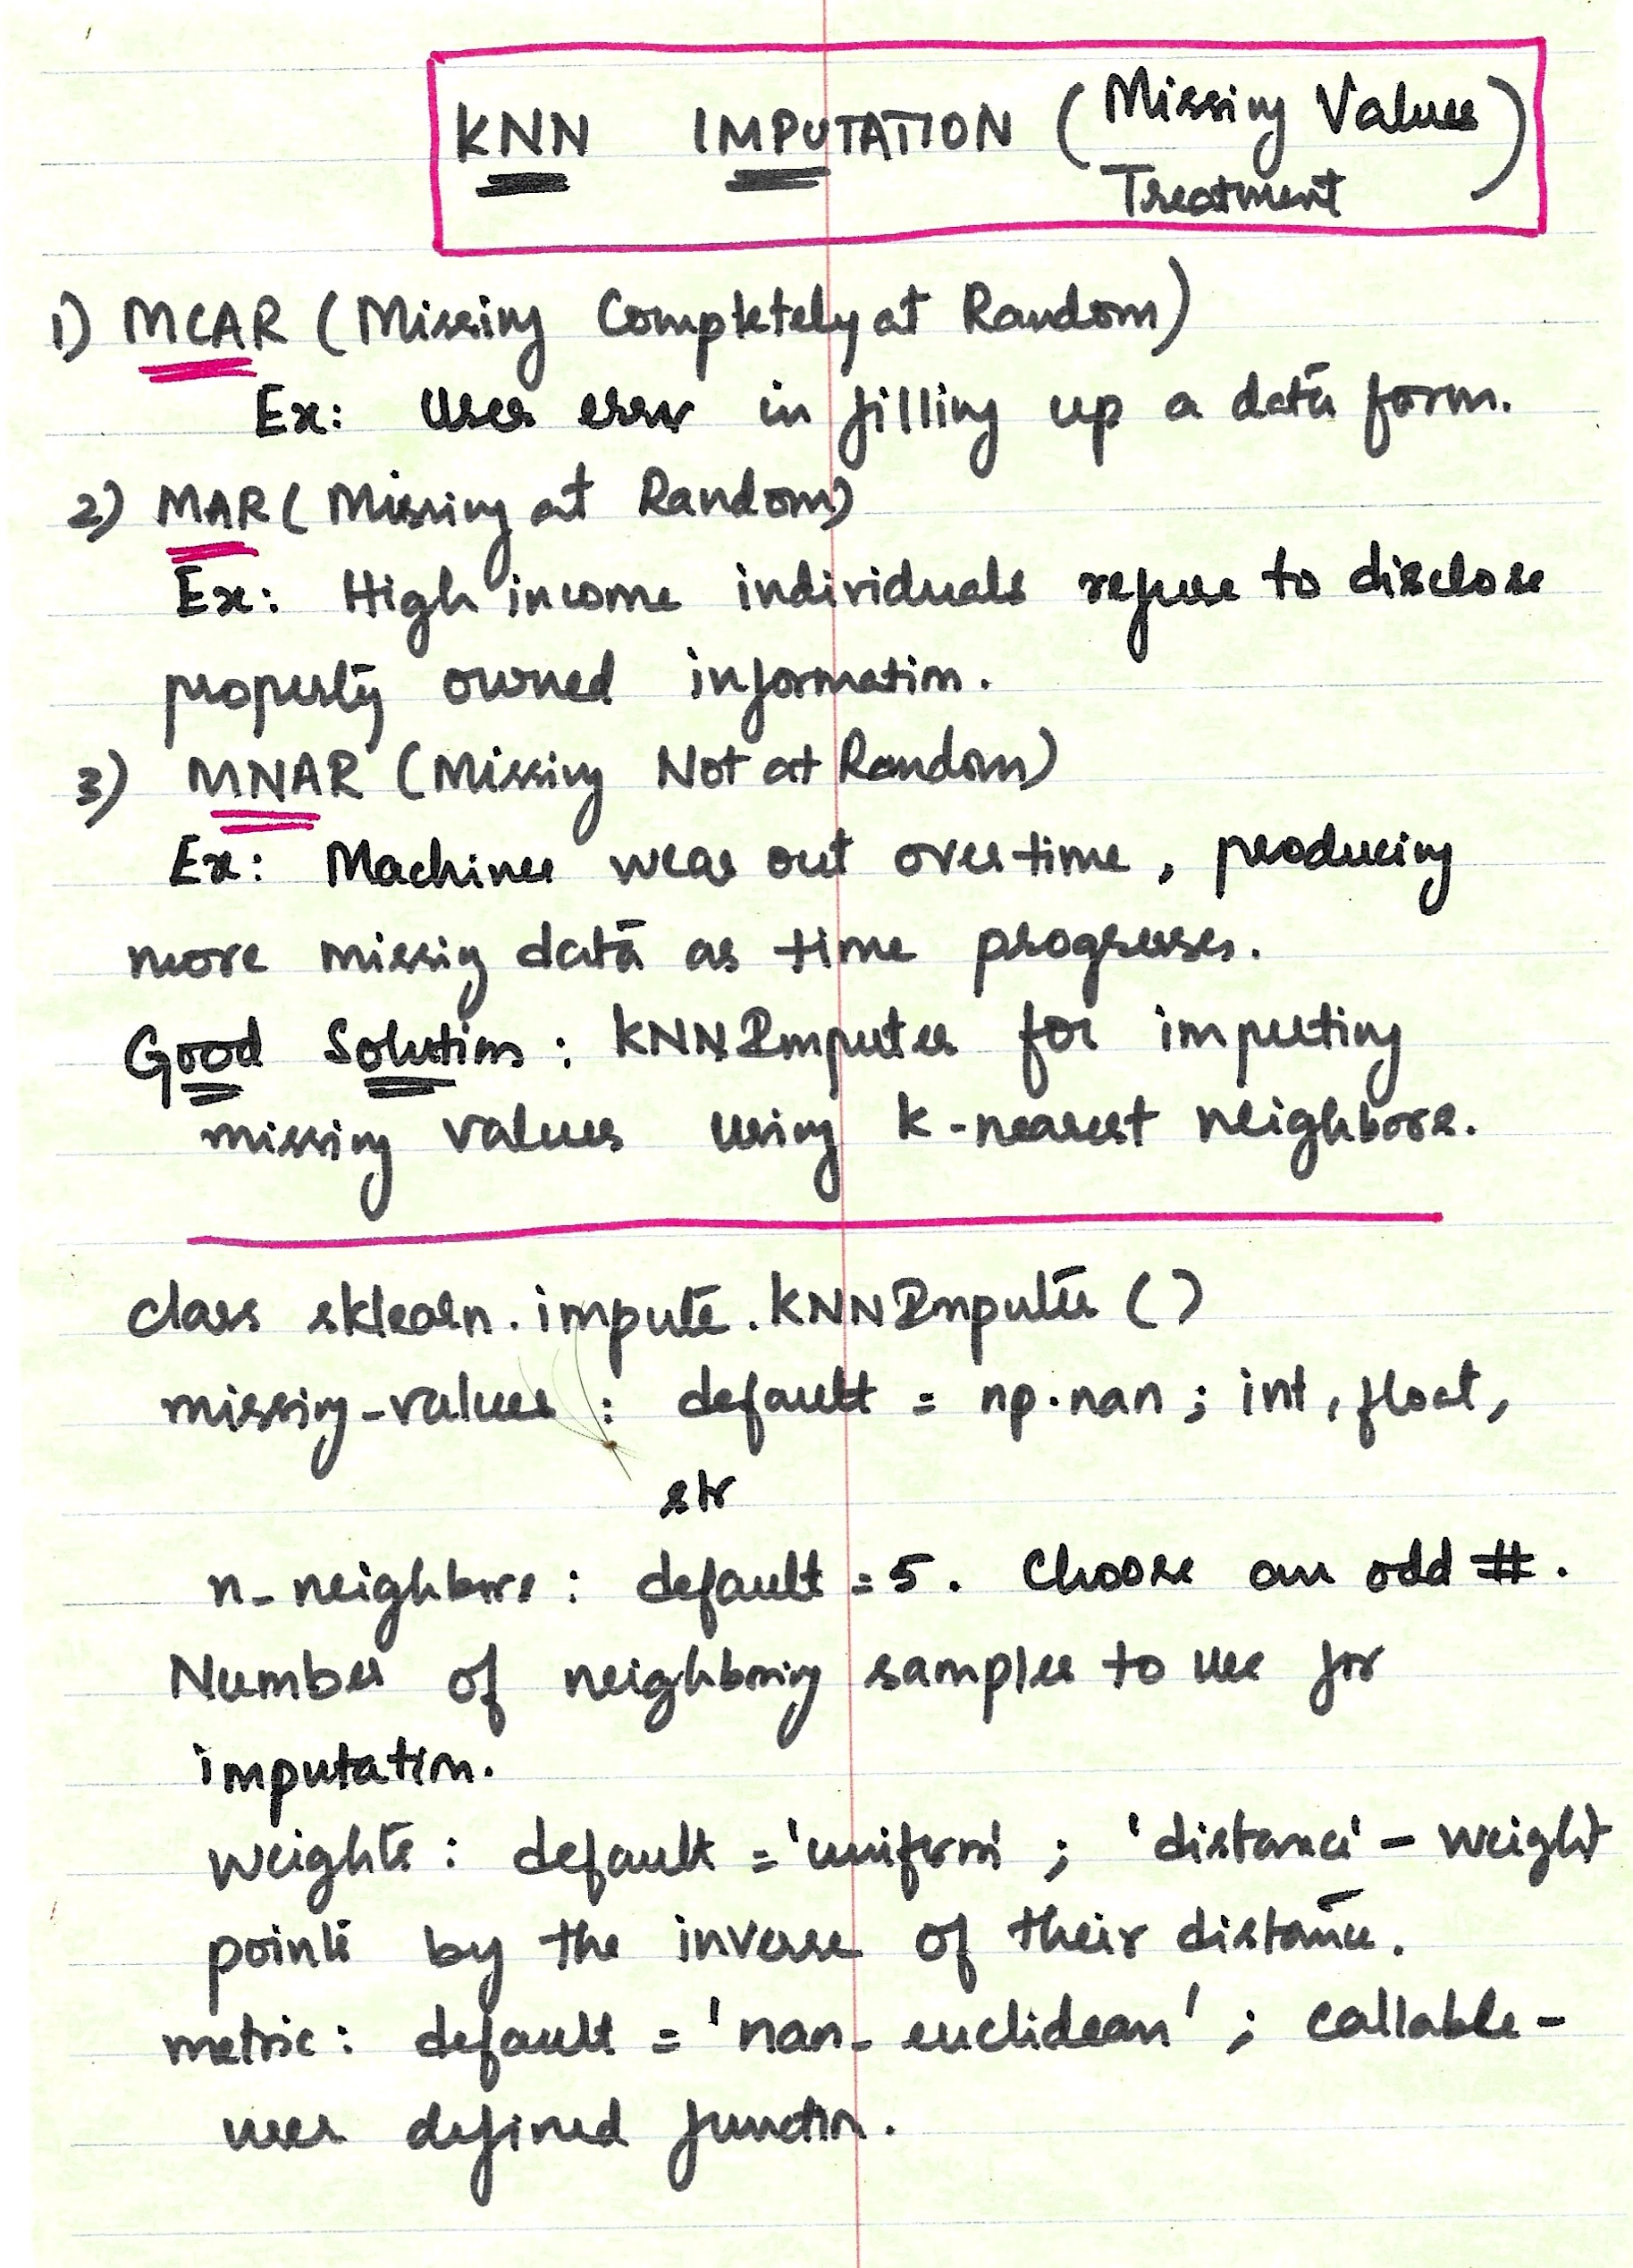 KNN IMPUTATION (Missing Values
Treatment)
1) MCAR (Missing Completely at Random)
Ex: User error in filling up a data form.
2) MAR (Missing at Random)
Ex: High income individuals refuse to disclose
property owned information.
3) MNAR (Missing Not at Random)
Ex: Machines wear out over time, producing
more missig data as time progresses.
Good Solution: KNNImputer for imputing
missing values using k-nearest neighbors.
class sklearn.impute.KNNImputer()
missing-values: default = np.nan; int, float,
str
n_neighbors: default = 5. Choose an odd #.
Number of neighboring samples to use for
imputation.
weights: default = 'uniform'; 'distance' - weight
points by the inverse of their distance.
metric: default = 'nan_euclidean'; callable -
user defined function.